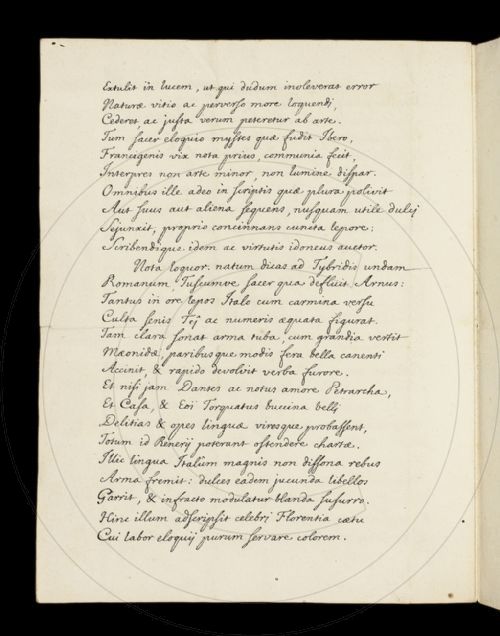 Extulit in lucem, ut qui dudum inoleverat error
Naturæ vitio ac perverſo more loquendi,
Cederet, ac juſta verum peteretur ab arte.
Tum ſacer eloquio myſtes quæ fudit Ibero,
Francigenis vix nota prius, communia fecit,
Interpres non arte minor, non lumine diſpar.
Omnibus ille adeo in ſcriptis quæ plura polivit
Aut ſuus aut aliena ſequens, nuſquam utile dulcj
Sejunxit, proprio concinnans cuncta lepore:
Scribendique idem ac virtutis idoneus auctor.
Nota loquor: natum dicas ad Tybridis undam
Romanum, Tuſcumve ſacer qua defluit Arnus:
Tantus in ore lepos Italo cum carmina verſu
Culta ſenis Tej ac numeris æquata figurat.
Tam clara ſonat arma tuba, cum grandia vertit
Mæonidæ, paribusque modis fera bella canenti
Accinit, & rapido devolvit verba furore.
Et niſi jam Dantes ac notus amore Petrarcha,
Et Caſa, & Eoi Torquatus buccina bellj
Delitias & opes linguæ viresque probaſſent,
Totum id Renerij poterant oſtendere chartæ.
Illic lingua Italûm magnis non diſſona rebus
Arma fremit: dulces eadem jucunda libellos
Garrit, & infracto modulatur blanda ſuſurro.
Hinc illum adſcripſit celebrj Florentia cœtu
Cui labor eloquij purum ſervare colorem.